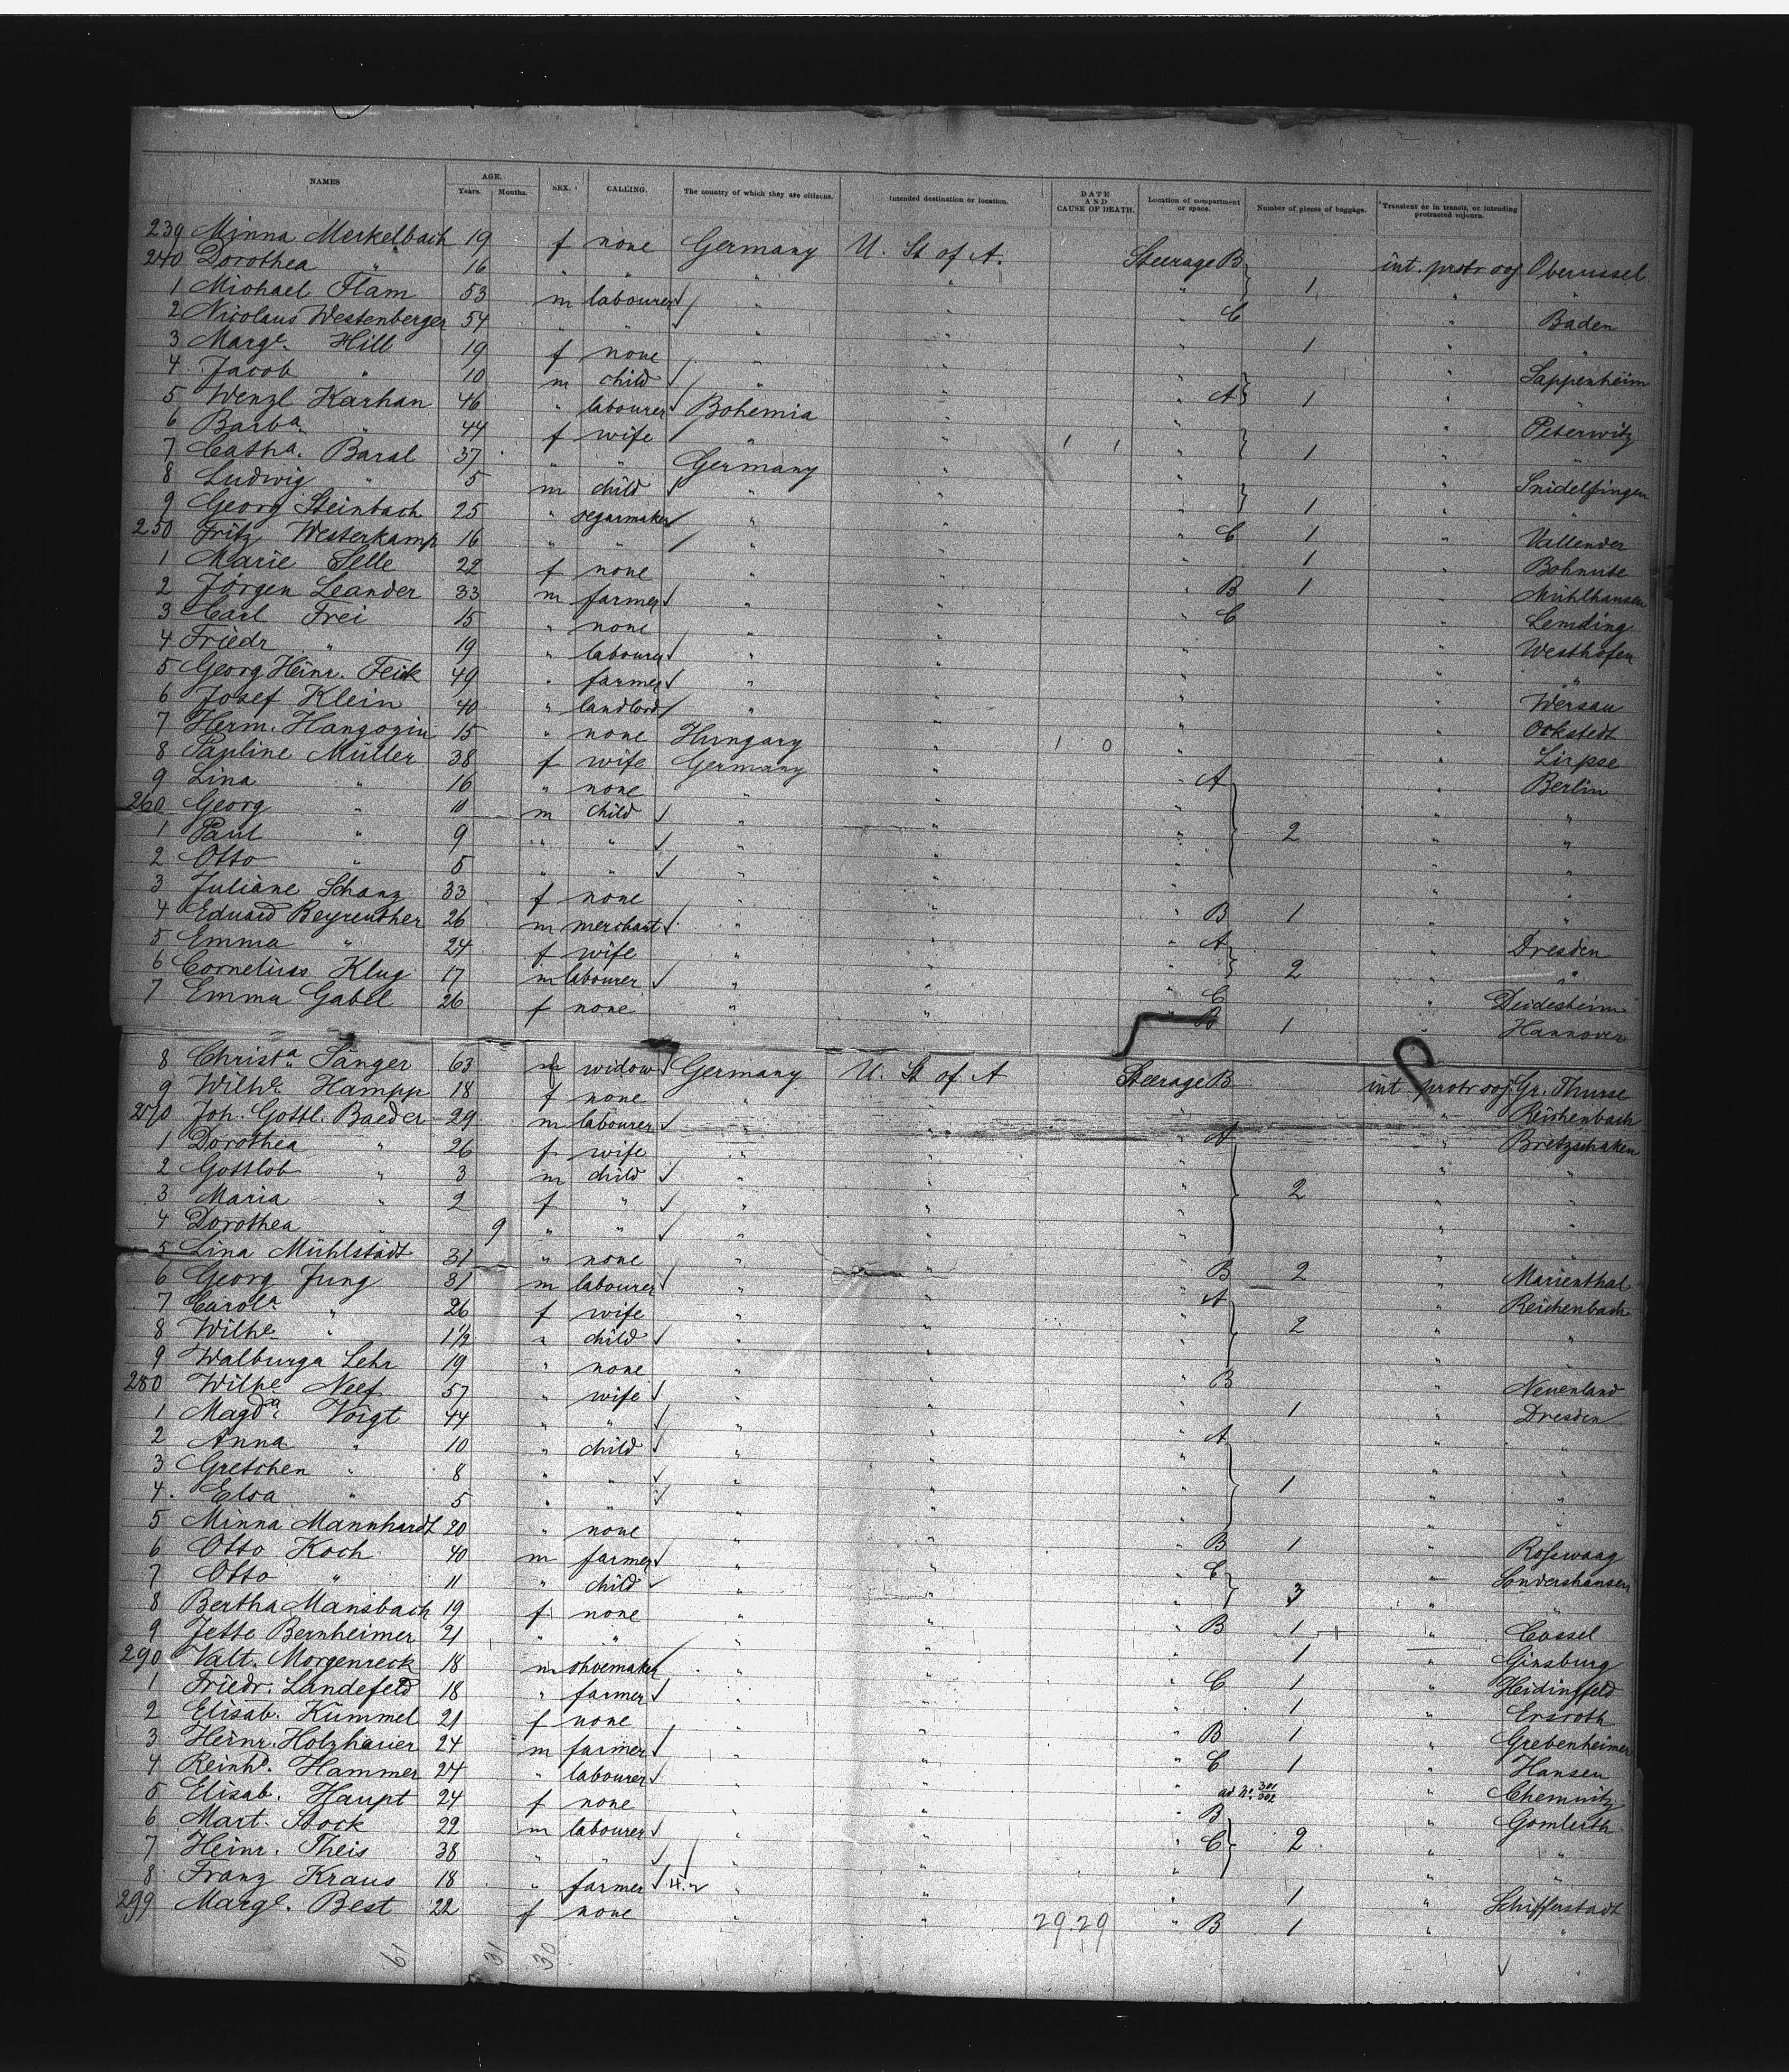 NAMES AGE. Years. Months. SEX. CALLING. The country of which they are citizens. Intended destination or location. DATE AND CAUSE OF DEATH. Location of compartment or space. Number of pieces of baggage. Transient or in transit, or intending protracted sojourn.
239 Minna Merkelbach 19 f none Germany U. St of A. Steerage B int. protr soj Oberussel
240 Dorothea " 16 " " " " " 1 " "
1 Michael Flam 53 m labourer " " " C " Baden
2 Nicolaus Westenberger 54 " " " " " 1 " "
3 Marge. Hill 19 f none " " " " Sappenheim
4 Jacob " 10 m child " " " A 1 " "
5 Wenzl Karhan 46 " labourer Bohemia " " " Peterwitz
6 Barba. " 44 f wife " " " 1 " "
7 Catha. Baral 37 " " Germany " " " Snidelfingen
8 Ludwig " 5 m child " " " 1 " "
9 Georg Steinbach 25 " segarmaker " " " C 1 " Vallender
250 Fritz Westerkamp 16 " " " " " 1 " Bohnute
1 Marie Selle 22 f none " " " B 1 " Mühlhausen
2 Jörgen Leander 33 m farmer " " " C " Lemding
3 Carl Frei 15 " none " " " " Westhofen
4 Friedr " 19 " labourer " " " " "
5 Georg Heinr. Feick 49 " farmer " " " " Wersau
6 Josef Klein 40 " landlord " " " " Ockstedt
7 Herm. Hangogin 15 " none Hungary " 1 0 " " Lirpse
8 Pauline Müller 38 f wife Germany " " A " Berlin
9 Lina " 16 " none " " " " "
260 Georg " 11 m child " " " 2 " "
1 Paul " 9 " " " " " " "
2 Otto " 5 " " " " " " "
3 Juliane Schanz 33 f none " " " B 1 " "
4 Eduard Beyreuther 26 m merchant " " " A " Dresden
5 Emma " 24 f wife " " " 2 " "
6 Cornelius Klug 17 m labourer " " " C " Deidesheim
7 Emma Gabel 26 f none " " " B 1 " Hannover
8 Christa. Sänger 63 widow Germany U. St of A Steerage B int. protr soj Gr. Thurse
9 Wilhe. Hampp 18 f none " " " " Reichenbach
270 Joh. Gottl. Baeder 29 m labourer " " " A " Bretzschaken
1 Dorothea " 26 f wife " " " " "
2 Gottlob " 3 m child " " " 2 " "
3 Maria " 2 f " " " " " "
4 Dorothea " 9 " " " " " " "
5 Lina Mühlstädt 31 " none " " " B 2 " Marienthal
6 Georg Jung 31 m labourer " " " A " Reichenbach
7 Carola. " 26 f wife " " " 2 " "
8 Wilhe " 1½ " child " " " " "
9 Walburga Lehr 19 " none " " " B " Neuenland
280 Wilhe. Neef 57 " wife " " " 1 " Dresden
1 Magda. Voigt 44 " " " " " A " "
2 Anna " 10 " child " " " " "
3 Gretchen " 8 " " " " " 1 " "
4. Elsa " 5 " " " " " " "
5 Minna Mannhardt 20 " none " " " B 1 " Roßwaag
6 Otto Koch 40 m farmer " " " C " Sondershausen
7 Otto " 11 " child " " " 3 " "
8 Bertha Mansbach 19 f none " " " B 1 " Cassel
9 Jette Bernheimer 21 " " " " " 1 " Ginsburg
290 Valt. Morgenreck 18 m shoemaker " " " C 1 " Heidingsfeld
1 Friedr. Landefeld 18 " farmer " " " 1 " Ersroth
2 Elisab. Kümmel 21 f none " " " B 1 " Grebenheimer
3 Heinr. Holzhäuer 24 m farmer " " " C 1 " Hansen
4 Reinhd. Hammer 24 " labourer " " " ad No. 301 302 " Chemnitz
5 Elisab. Haupt 24 f none " " " B " Gomlerth
6 Mart. Stock 22 m labourer " " " C 2 " "
7 Heinr. Theis 38 " " " " " " "
8 Franz Kraus 18 " farmer " " " 1 " Schifferstadt
299 Marge. Best 22 f none " " 29.29 " B 1 " "
61 31 30